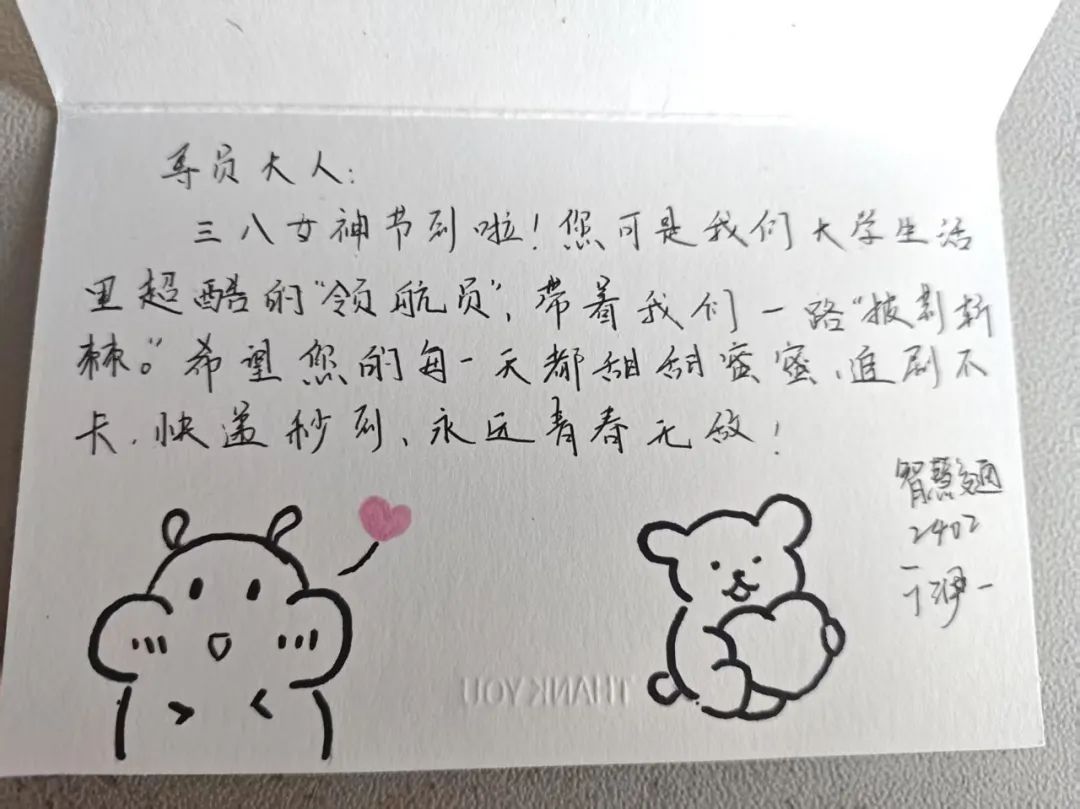 导员大人:
三八女神节到啦!您可是我们大学生活
里超酷的“领航员”,带着我们一路“披荆斩
棘。”希望您的每一天都甜甜蜜蜜、追剧不
卡、快递秒到、永远青春无敌!
智慧交通
2402
THANK YOU